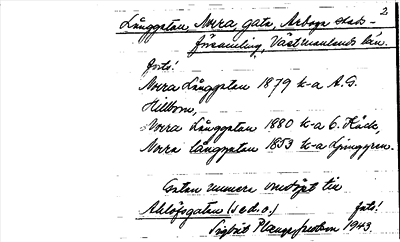 2
Långgatan, Norra gata, Arboga stads-
församling, Västmanlands län.
foto!
Norra Långgatan 1879 k-a A.G.
Hillbom,
Norra Långgatan 1880 k-a C. Håck,
Norra långgatan 1853 k-a Ljunggren.
Gatan numera omdöpt till
Ahllöfsgatan (se d.o.) foto!
1943